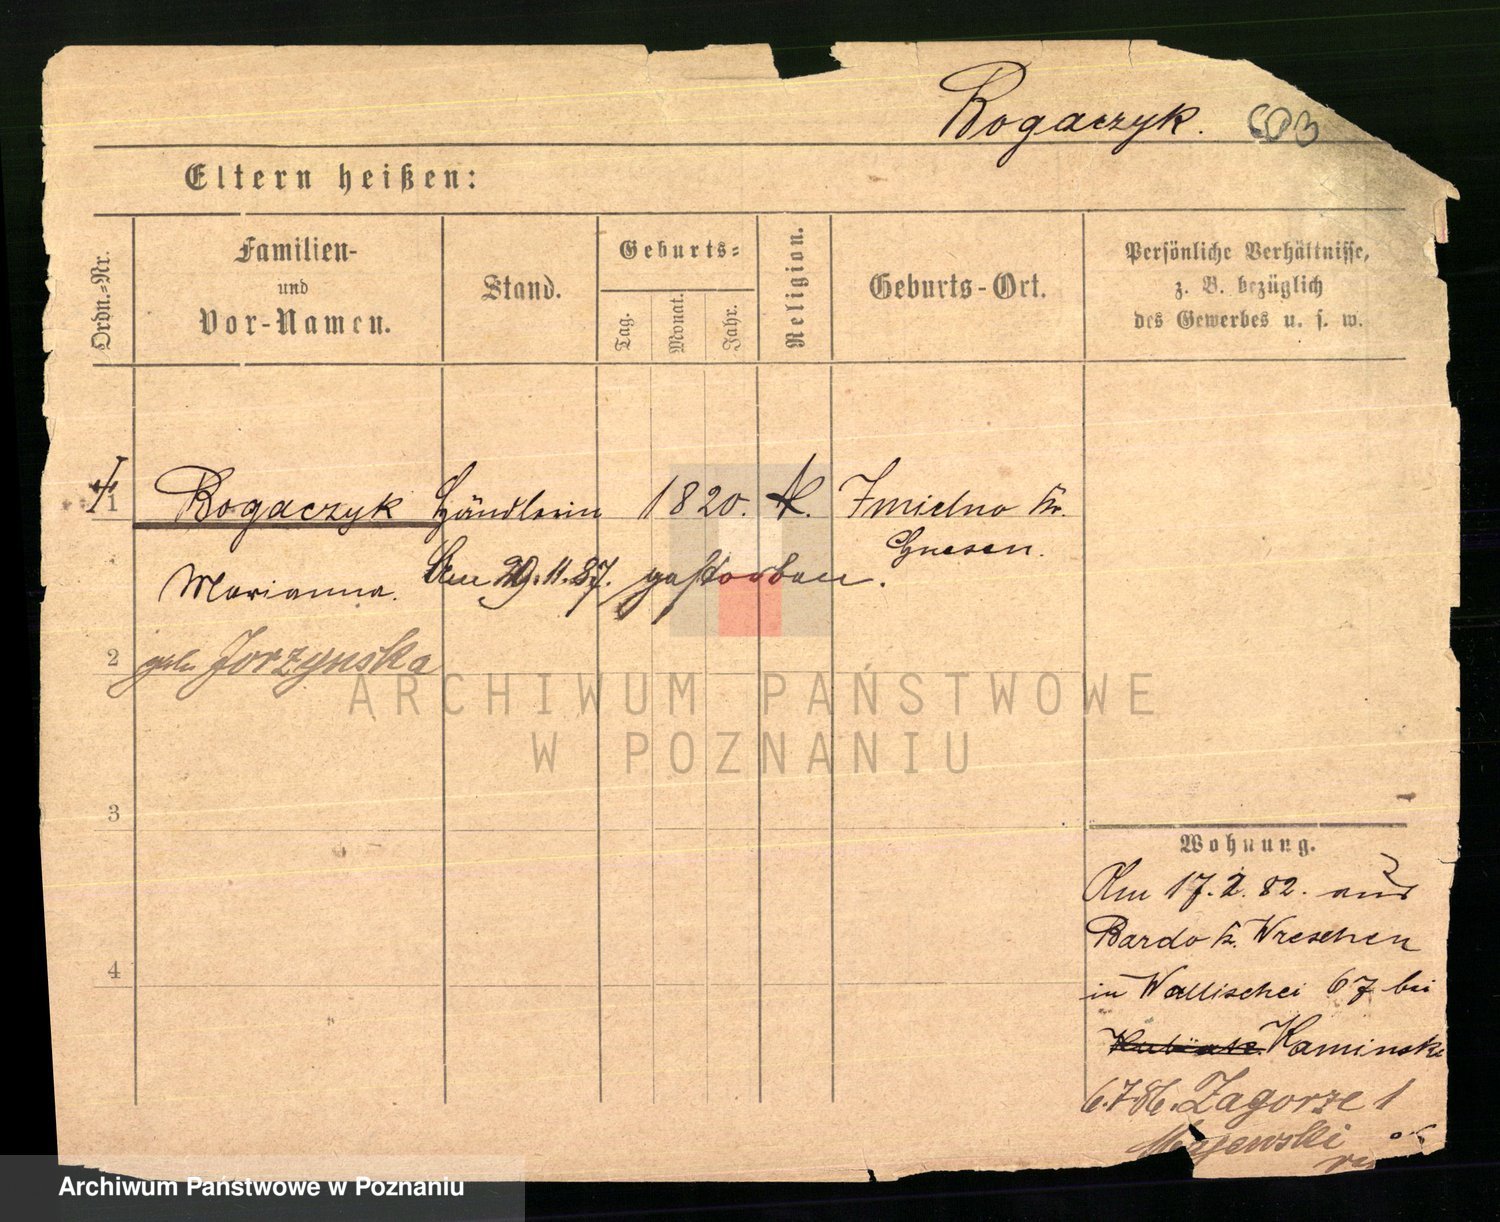 Rogaczyk. 603
Eltern heißen:
Ordn.-Nr.
Familien-
und
Vor-Namen.
Stand.
Geburts-
Tag.
Monat.
Jahr.
Religion.
Geburts-Ort.
Persönliche Verhältnisse,
z. B. bezüglich
des Gewerbes u. s. w.
1 Rogaczyk Händlerin 1820. K. Imielno Kr.
Gnesen.
Marianna. Am 29.11.87. gestorben.
2 geb. Jorzynska
ARCHIWUM PAŃSTWOWE
W POZNANIU
3
4
Wohnung.
Am 17.2.82. aus
Bardo Kr. Wreschen
in Wallischei 67 bei
Kaminski
6.7.86. Zagorze 1
Majewski
Archiwum Państwowe w Poznaniu